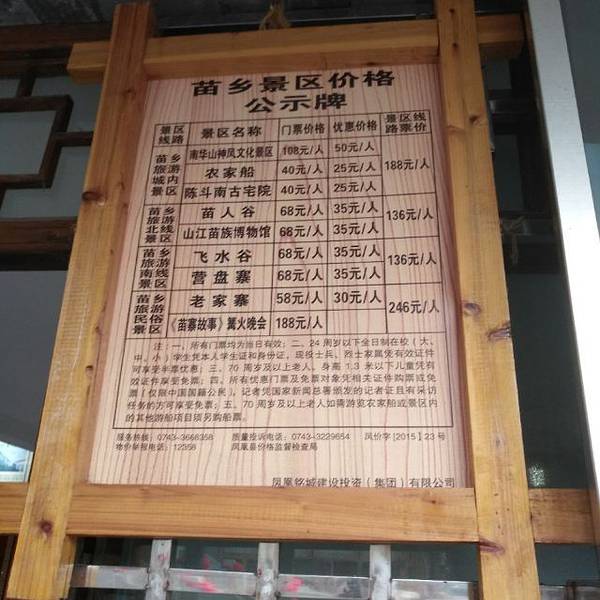 苗乡景区价格
公示牌
景区线路 景区名称 门票价格 优惠价格 景区线路票价
苗乡旅游城内景区 南华山神凤文化景区 108元/人 50元/人 188元/人
农家船 40元/人 25元/人
陈斗南古宅院 40元/人 25元/人
苗乡旅游北线景区 苗人谷 68元/人 35元/人 136元/人
山江苗族博物馆 68元/人 35元/人
苗乡旅游南线景区 飞水谷 68元/人 35元/人 136元/人
营盘寨 68元/人 35元/人
苗乡旅游民俗景区 老家寨 58元/人 30元/人 246元/人
《苗寨故事》篝火晚会 188元/人
注：一、所有门票均为当日有效；二、24周岁以下全日制在校（大、
中、小）学生凭本人学生证和身份证，现役士兵、烈士家属凭有效证件
可享受半票优惠；三、70周岁及以上老人，身高1.3米以下儿童凭有
效证件享受免票；四、所有优惠门票及免票对象凭相关证件购票或免
票（仅限中国国籍公民），记者凭国家新闻总署颁发的记者证且有采访
任务的方可享受免票；五、70周岁及以上老人如需游览农家船或景区内
的其他游船项目须另购船票。
服务热线：0743-3668358 质量投诉电话：0743-3229654 凤价字[2015]23号
物价举报电话：12358 凤凰县价格监督检查局
凤凰铭城建设投资（集团）有限公司